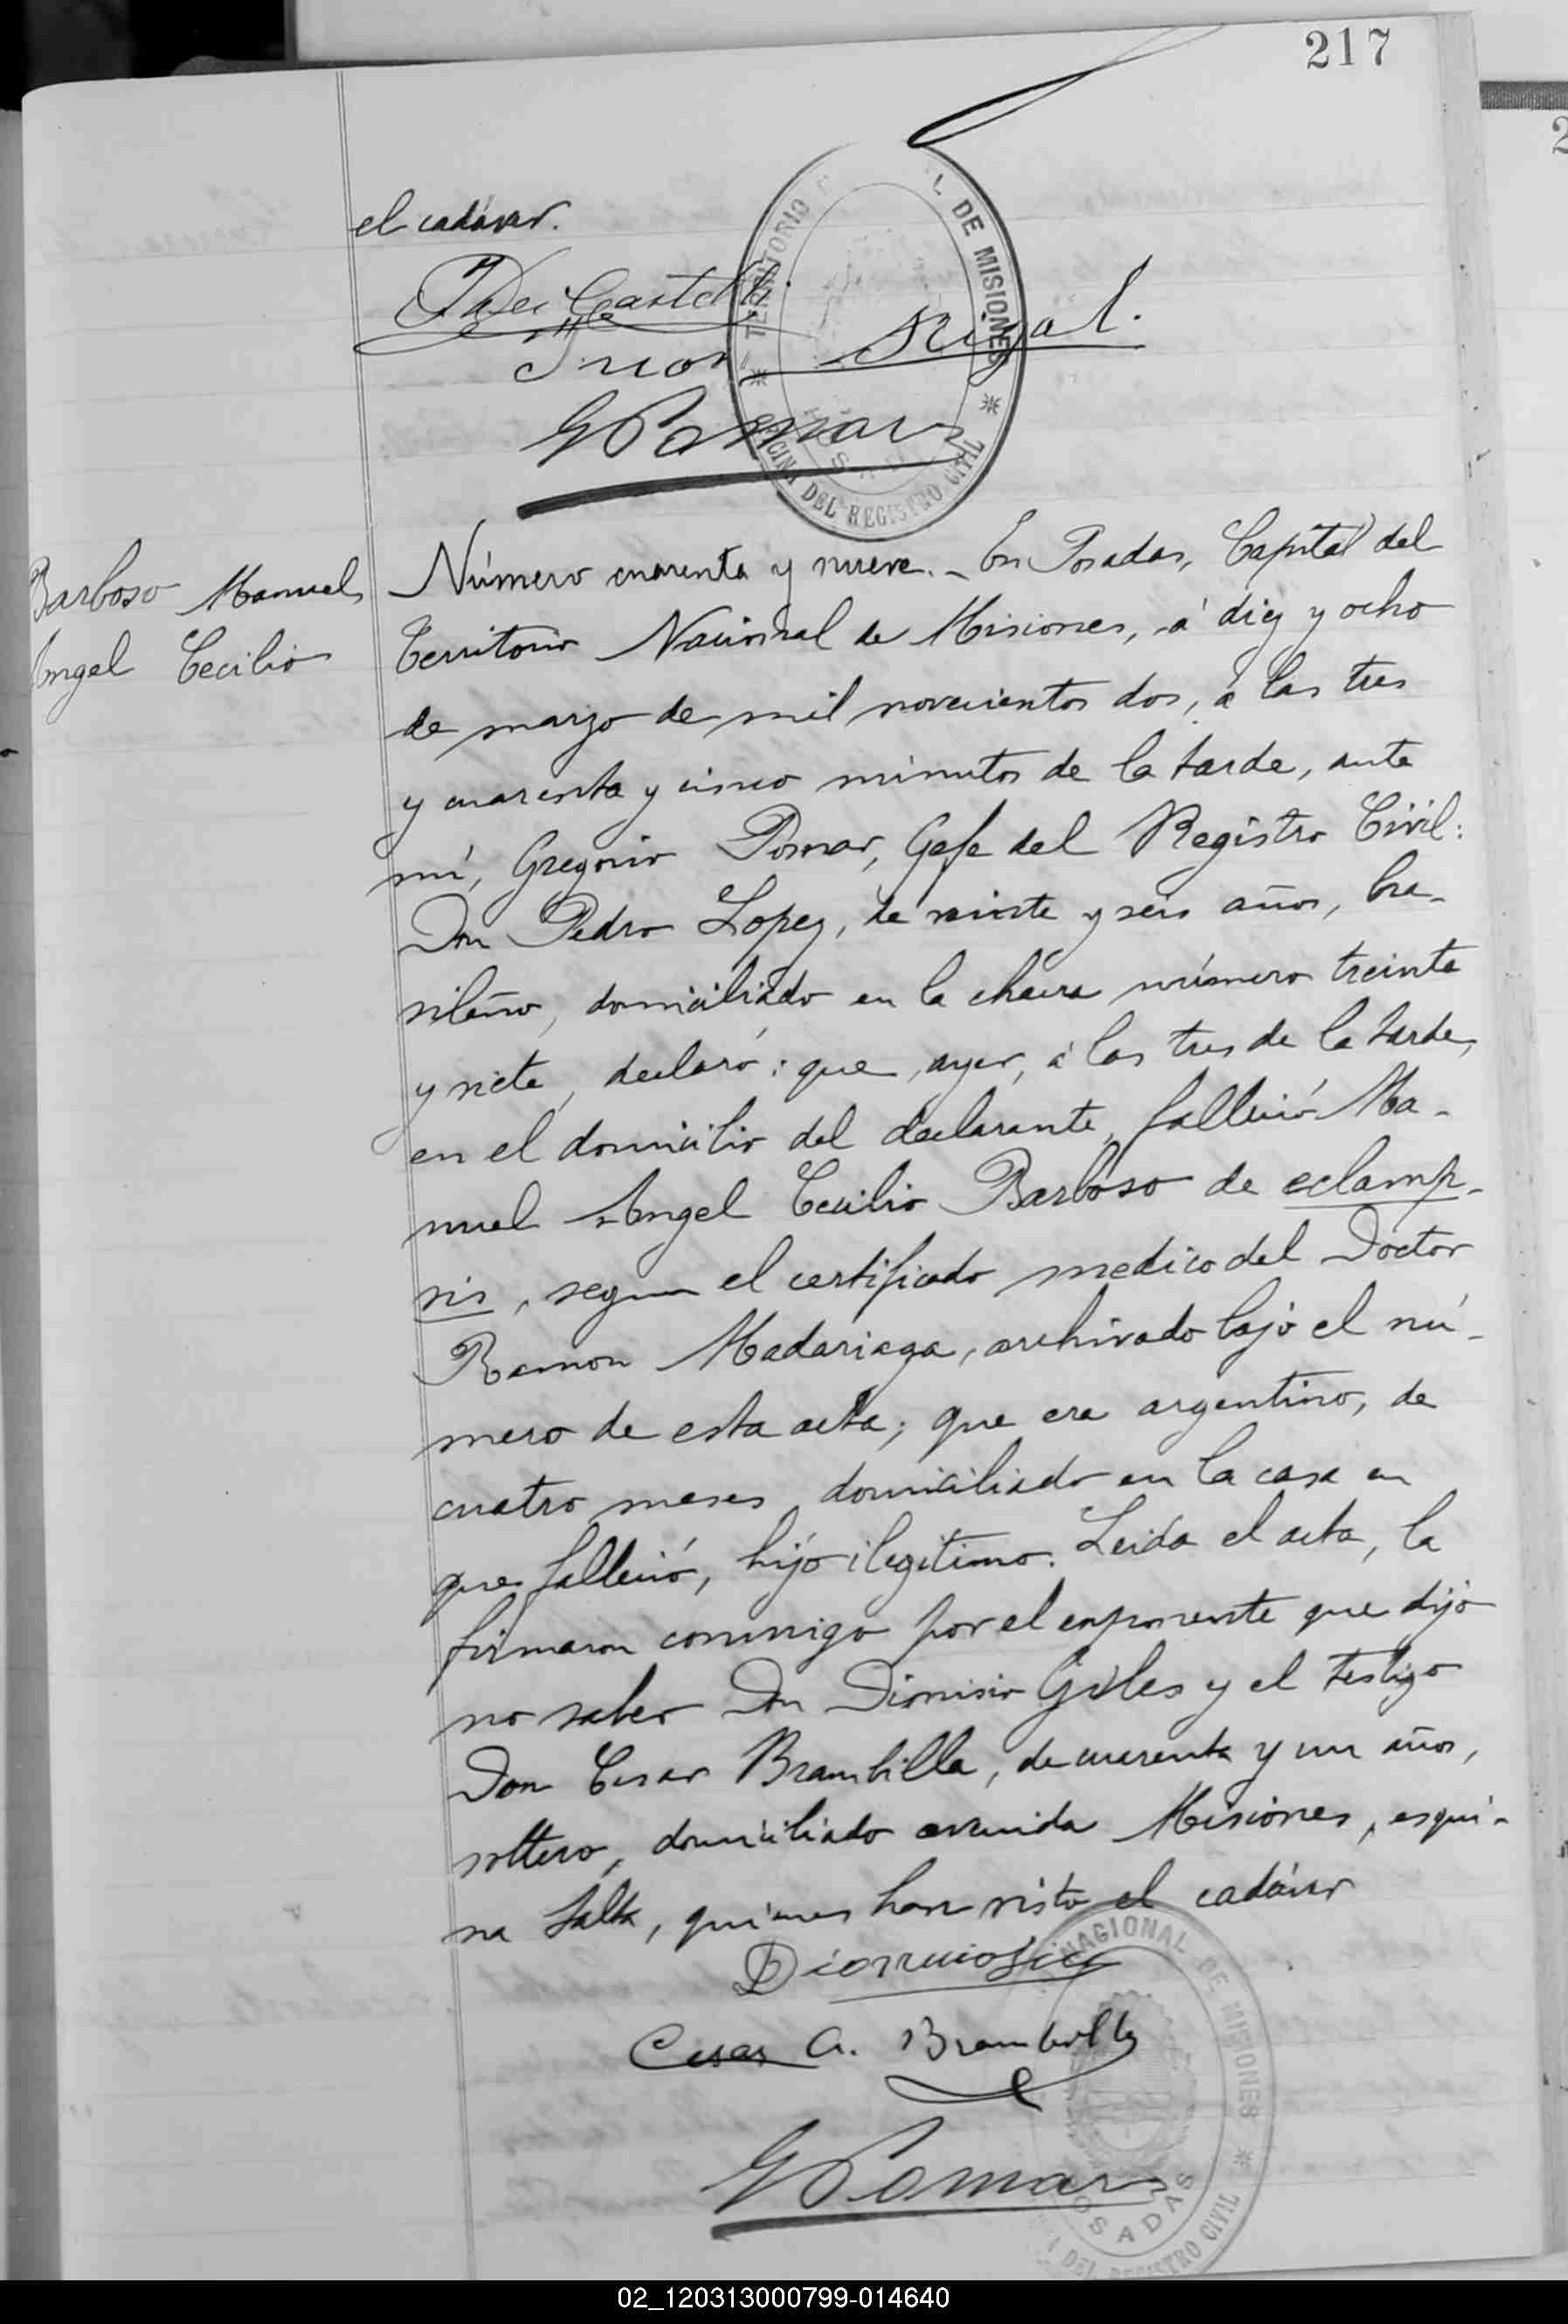 217
el cadáver.
TERRITORIO L DE MISIONES
OFICINA DEL REGISTRO CIVIL
Rigal.
GPomar
Barboso Manuel
Angel Cecilio
Número cuarenta y nueve. – En Posadas, Capital del
Territorio Nacional de Misiones, á diez y ocho
de marzo de mil novecientos dos, á las tres
y cuarenta y cinco minutos de la tarde, ante
mí, Gregorio Pomar, Gefe del Registro Civil:
Don Pedro Lopez, de veinte y seis años, bra-
sileño, domiciliado en la chacra número treinta
y siete, declaró: que, ayer, á las tres de la tarde,
en el domicilio del declarante, falleció Ma-
nuel Angel Cecilio Barboso de eclamp-
sis, segun el certificado medico del Doctor
Ramon Madariaga, archivado bajo el nú-
mero de esta acta; que era argentino, de
cuatro meses, domiciliado en la casa en
que falleció, hijo ilegitimo. Leida el acta, la
firmaron conmigo por el exponente que dijo
no saber Don Dionisio Giles y el testigo
Don Cesar Brambilla, de cuarenta y un años,
soltero, domiciliado avenida Misiones, esqui-
na Salta, quienes han visto el cadáver
NACIONAL DE MISIONES
Cesar A. Brambilla
GPomar
POSADAS
DEL REGISTRO CIVIL
02_120313000799-014640